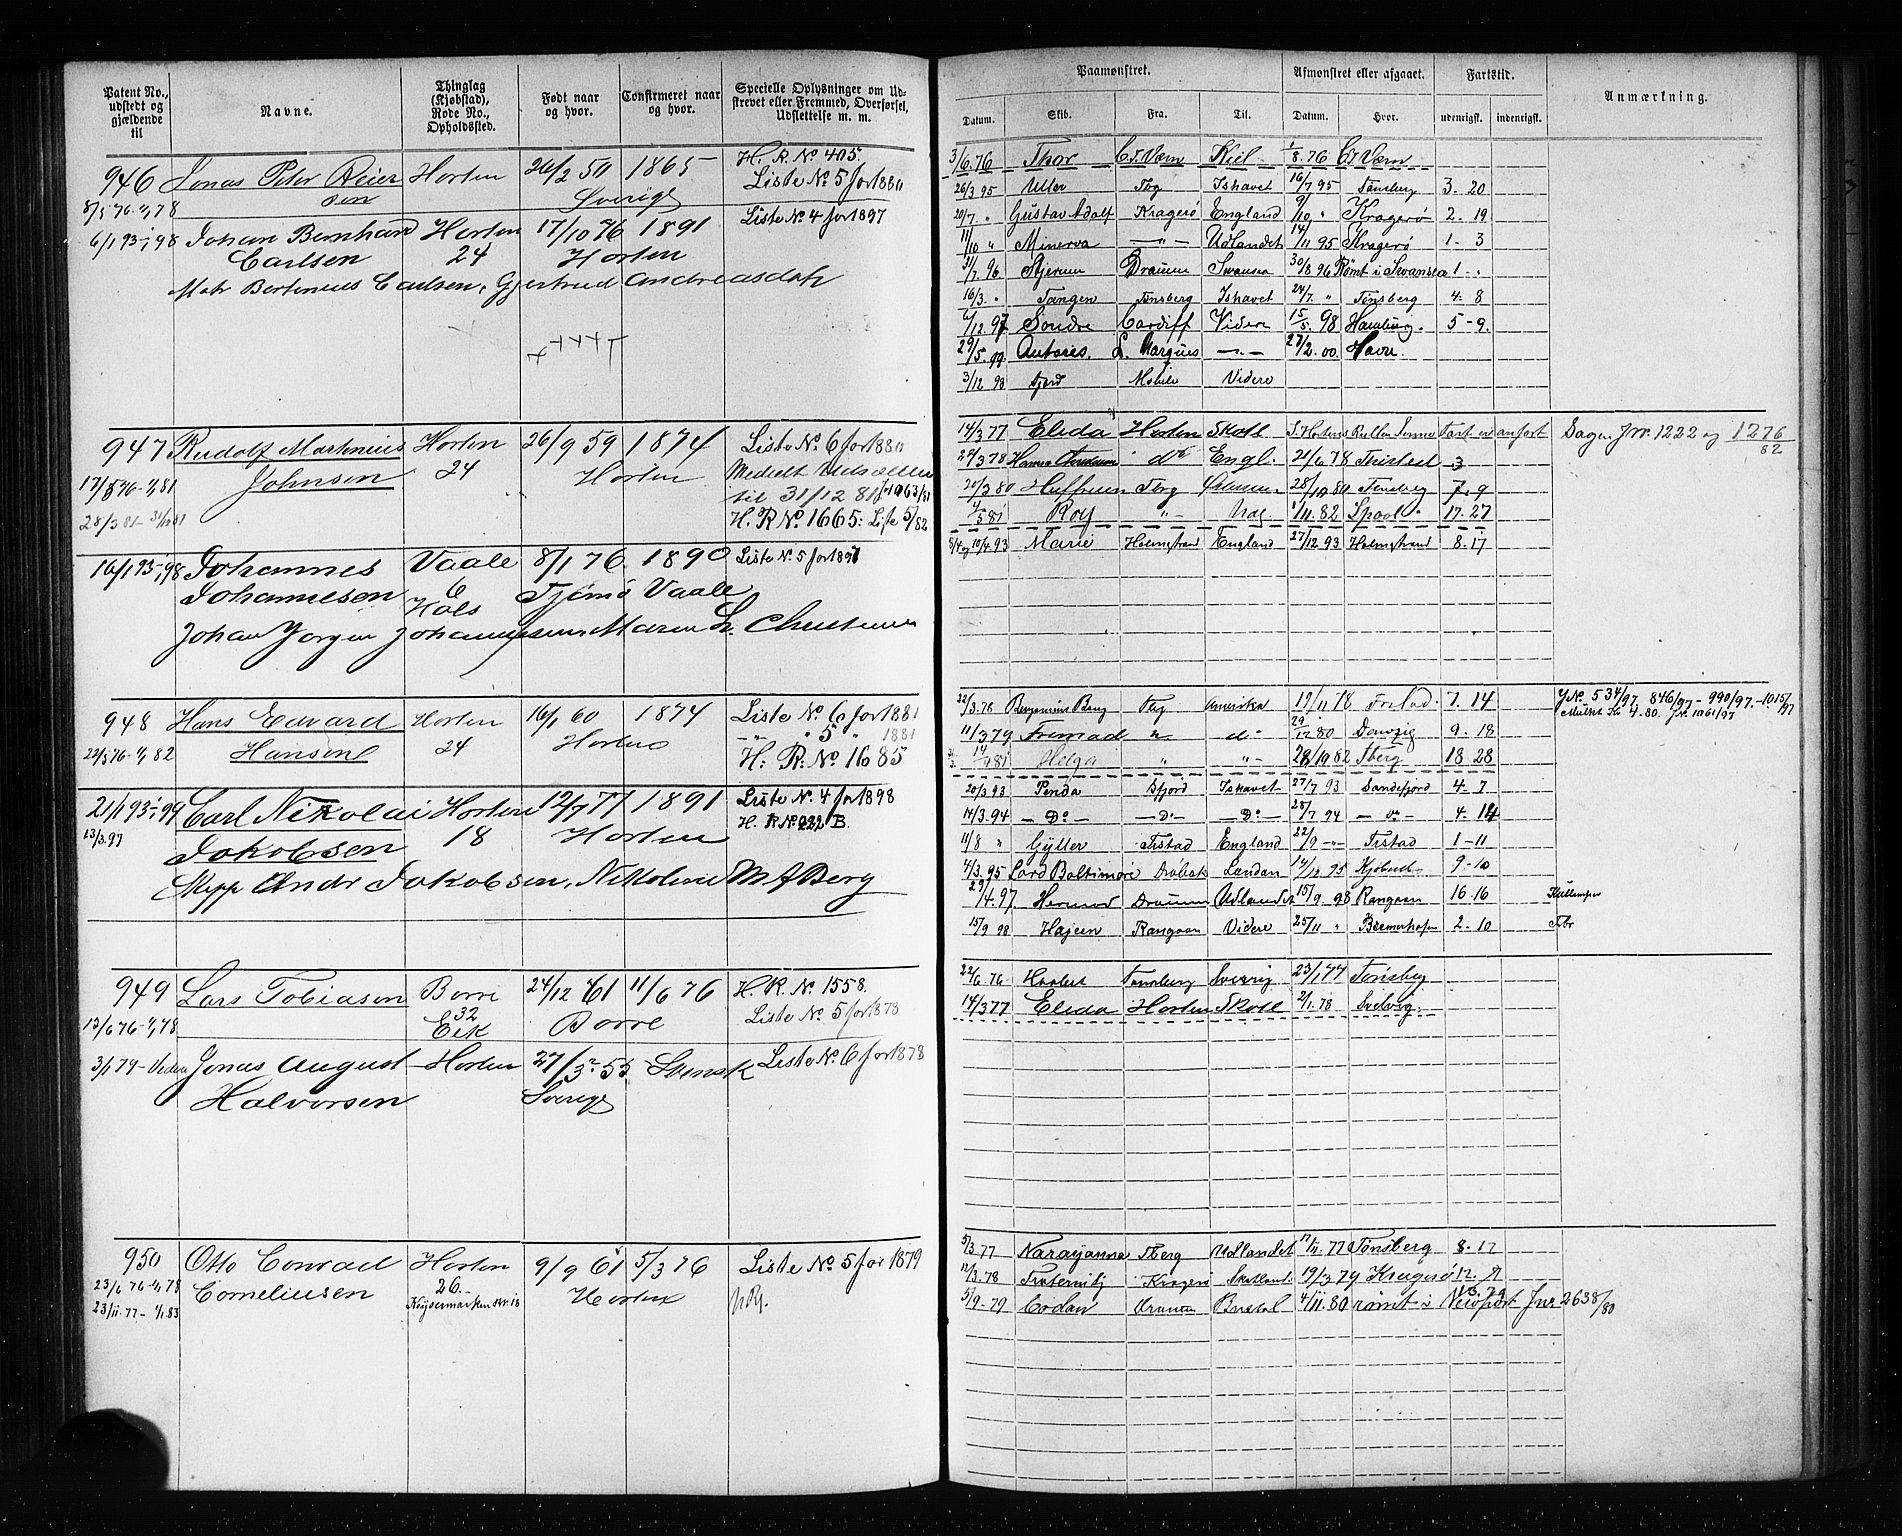 Patent No., udstedt og gjældende til
Navne.
Thinglag (Kjøbstad), Rode No., Opholdssted.
Født naar og hvor.
Confirmeret naar og hvor.
Specielle Oplysninger om Udstrevet eller Fremmed, Overførsel, Udslettelse m. m.
946 Jonas Peter Reier Horten 26/2 50 1865 H. R. No 405.
sen Sverige Liste No. 5 for 1880
8/5 76 - 1/1 78
6/1 93 - 1/1 98 Johan Bernhard Horten 17/10 76 1891 Liste No. 4 for 1897
Carlsen 24 Horten
Matr Bertinius Carlsen, Gjertrud Andreasdatr
947 Rudolf Martinius Horten 26/9 59 1874 Liste No. 6 for 1880
Johnsen 24 Horten
17/5 76 - 1/1 81 til 31/12 81
28/3 81 - 31/12 81 H. R No. 1665: Liste 5/82
16/1 93 - 1/1 98 Johannes Vaale 8/1 76 1890 Liste No. 5 for 1897
Johannesen 6 Tjømø Vaale
Johan Jørgen Johannesen, Maren
948 Hans Edvard Horten 16/1 60 1874 Liste No. 6 for 1881
Hansen 24 Horten " 5 " 1881
22/5 76 - 1/1 82 H. R. No. 1685
21/1 93 - 1/1 99 Carl Nikolai Horten 12/7 77 1891 Liste No. 4 for 1898
13/3 97 H. R No. 222 B.
Jakobsen 18 Horten
Skipp Andr Jakobsen, Nikoline M A Berg
949 Lars Tobiasen Borre 24/12 61 11/6 76 H. R. No. 1558.
12/6 76 - 1/1 78 32 Eik Borre Liste No. 5 for 1878
3/1 79 - Videre Jonas August Horten 27/3 55 Svensk Liste No. 6 for 1878
Halvorsen Sverige
950 Otto Conrad Horten 9/9 61 5/3 76 Liste No. 5 for 1879
23/6 76 - 1/1 78 Corneliusen 26. Horten
23/11 77 - 1/1 83 Keysermarken
Paamønstret. Afmønstret eller afgaaet. Fartstid. Anmærkning.
Datum. Skib. Fra. Til. Datum. Hvor. udenrigsk. indenrigsk.
3/6 76 Thor C J. Værn Kiel 1/8 76 C J Værn
26/3 95 Uller Tbg Ishavet 16/7 95 Tønsberg 3. 20
20/7 " Gustav Adolf Kragerø England 9/10 " Kragerø 2. 19
11/10 " Minerva — " — Udlandet 14/11 95 Kragerø 1. 3
31/7 96 Stjernen Drammen Swansea 30/8 96 Rømt i Swansea 1 - "
16/3 " Tangen Tønsberg Ishavet 24/7 " Tønsberg 4. 8
6/12 97 Søndre Cardiff Videre 15/5 98 Hamburg. 5 - 9.
29/5 99 Antares. L. Marques — " — 27/2 00 Havre.
3/12 98 Fjord Mobile Videre
14/3 77 Eleda Horten Skotl
Sagen Jnr. 1222 og 1276/82
24/3 78 do Engl. 21/6 78 Thisted 3
20/3 80 Tbrg 28/10 80 Tønsberg 7. 9
Roy " 1/11 82 17. 27
10/4 93 Marie Holmstrand England 27/12 93 Holmstrand 8. 17
22/3 78 Tbg Amerika 19/11 78 Frstad. 7. 14 J No. 534/97, 846/97 - 990/97 - 1015/97
Mulkt Kr 4.80. J No. 1061/97
11/3 79 Fremad " do 29/12 80 Danzig 9. 18
Helga " " 28/10 82 Tberg 18 28
20/3 93 Penda Sfjord Ishavet 27/7 93 Sandefjord 4. 7
14/3 94 — Do — — Do — — Do — 28/7 94 — do — 4. 14
11/8 " Gyller Frstad England 22/9 - " - Frstad 1 - 11
4/3 95 Lord Baltimore Drøbak London 14/12 95 Kjøbenh. 9 - 10
29/4 97 Hermod Drammen Udlandet 15/9 98 Rangoon 16. 16
15/9 98 Hajeen Rangoon Videre 25/11 " Bremerhafen 2. 10
22/6 76 Tønsberg Sverrig 23/1 77 Tønsberg
14/3 77 Eleda Horten Skotl 2/1 78 Svelvig.
5/3 77 Narayanna Tberg Udlandet 17/11 77 Tønsberg 8. 12
12/3 78 Kragerø Skotland 19/3 79 Kragerø 12.
5/9 79 Drammen Bristol 4/11 80 rømt i Newport Jnr 2638/80